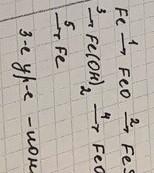 Fe →1 FeO →2 FeS
→3 Fe(OH)2 →4 FeO
→5 Fe
3-е ур-е - ион